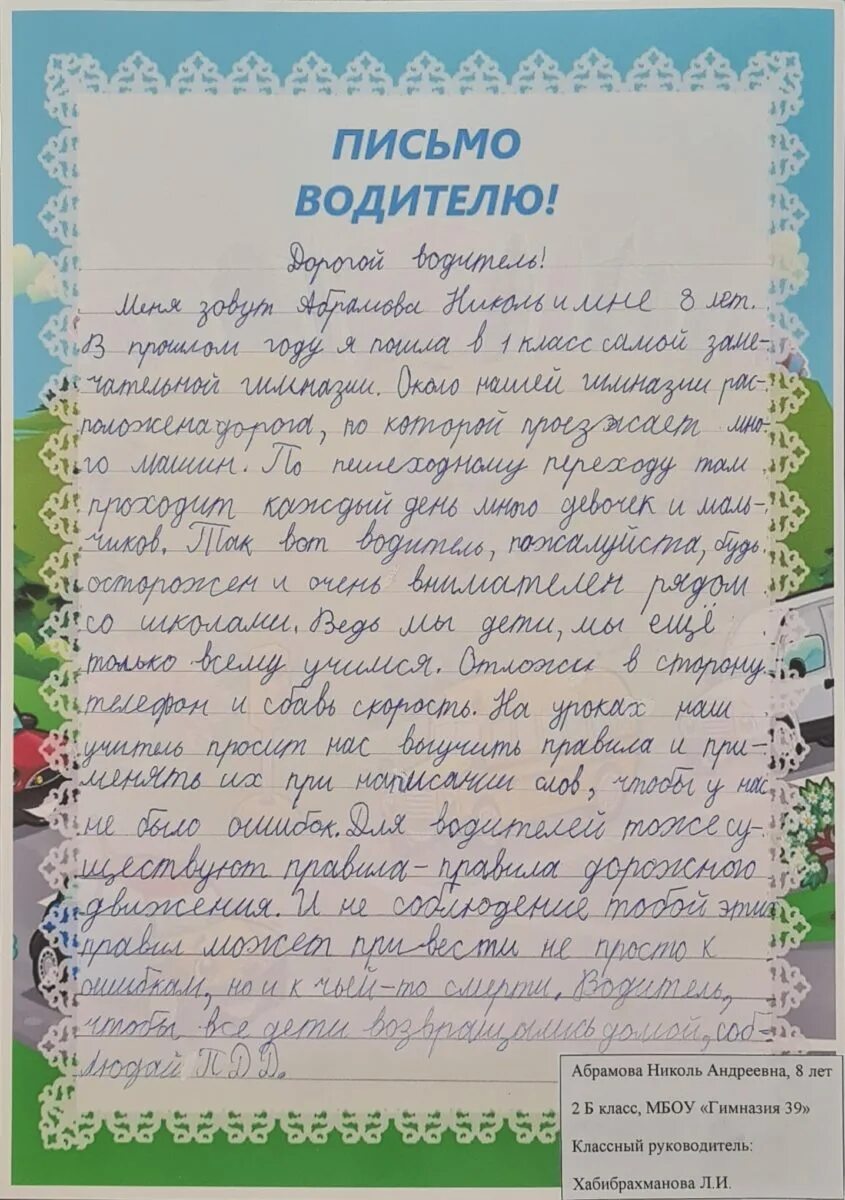 ПИСЬМО
ВОДИТЕЛЮ!
Дорогой водитель!
Меня зовут Абрамова Николь и мне 8 лет.
В прошлом году я пошла в 1 класс самой заме-
чательной гимназии. Около нашей гимназии рас-
положена дорога, по которой проезжает мно-
го машин. По пешеходному переходу там
проходит каждый день много девочек и маль-
чиков. Так вот водитель, пожалуйста, будь
осторожен и очень внимателен рядом
со школами. Ведь мы дети, мы ещё
только всему учимся. Отложи в сторону
телефон и сбавь скорость. На уроках наш
учитель просит нас выучить правила и при-
менять их при написании слов, чтобы у нас
не было ошибок. Для водителей тоже су-
ществуют правила - правила дорожного
движения. И не соблюдение тобой этих
правил может привести не просто к
ошибкам, но и к чьей-то смерти. Водитель,
чтобы все дети возвращались домой, соб-
людай ПДД.
Абрамова Николь Андреевна, 8 лет
2 Б класс, МБОУ «Гимназия 39»
Классный руководитель:
Хабибрахманова Л.И.